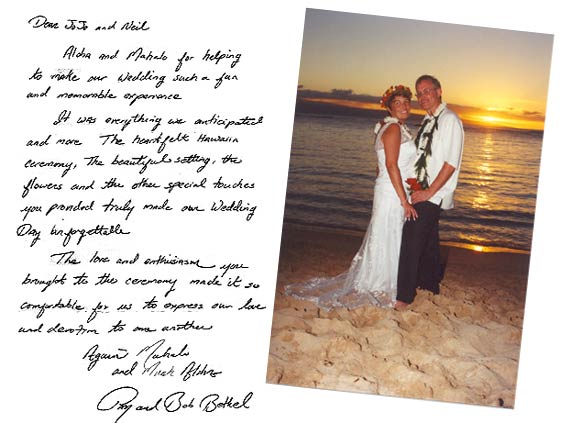 Dear JoJo and Neil
Aloha and Mahalo for helping
to make our wedding such a fun
and memorable experience
It was everything we anticipated
and more The heartfelt Hawaiian
ceremony, The beautiful setting, the
flowers and the other special touches
you provided truly made our Wedding
Day Unforgettable
The love and enthusiasm you
brought to the ceremony made it so
comfortable for us to express our love
and devotion to one another
Again Mahalo
and Much Aloha
and Bob Bethel